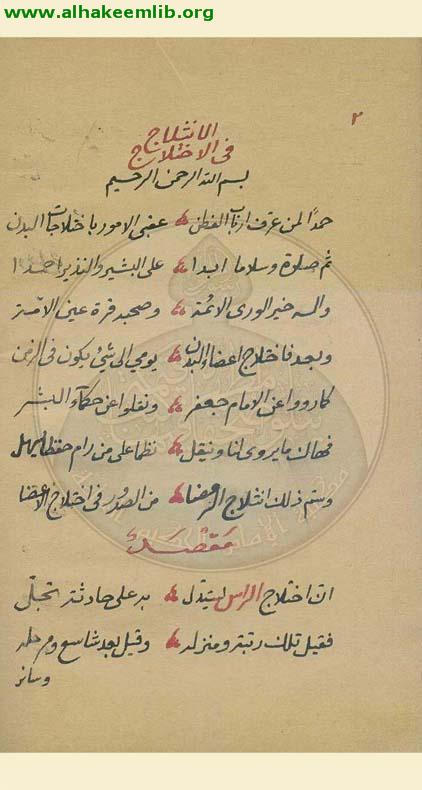 www.alhakeemlib.org
٢
الانثلاج
فى الاختلاج
بسم الله الرحمن الرحيم
حمدًا لمن عرف ارباب الفطن عقبى الامور باختلاجات البدن
ثم صلوة وسلاما ابدا على البشير والنذير احمدا
واله خير الورى الائمة وصحبه قرة عين الامة
وبعد فاختلاج اعضاء البدن يومي الى شئ يكون فى الزمن
كما رووا عن الامام جعفر ونقلوا عن حكماء البشر
فهاك ما يروى لنا وينقل نظما على من رام حفظا يسهل
وسم ذلك انثلاج من الصدور فى اختلاج الاعضا
مقصد
ان اختلاج الراس يستدل به على حادثة تجل
فقيل تلك رتبة ومنزله وقيل بعد شاسع